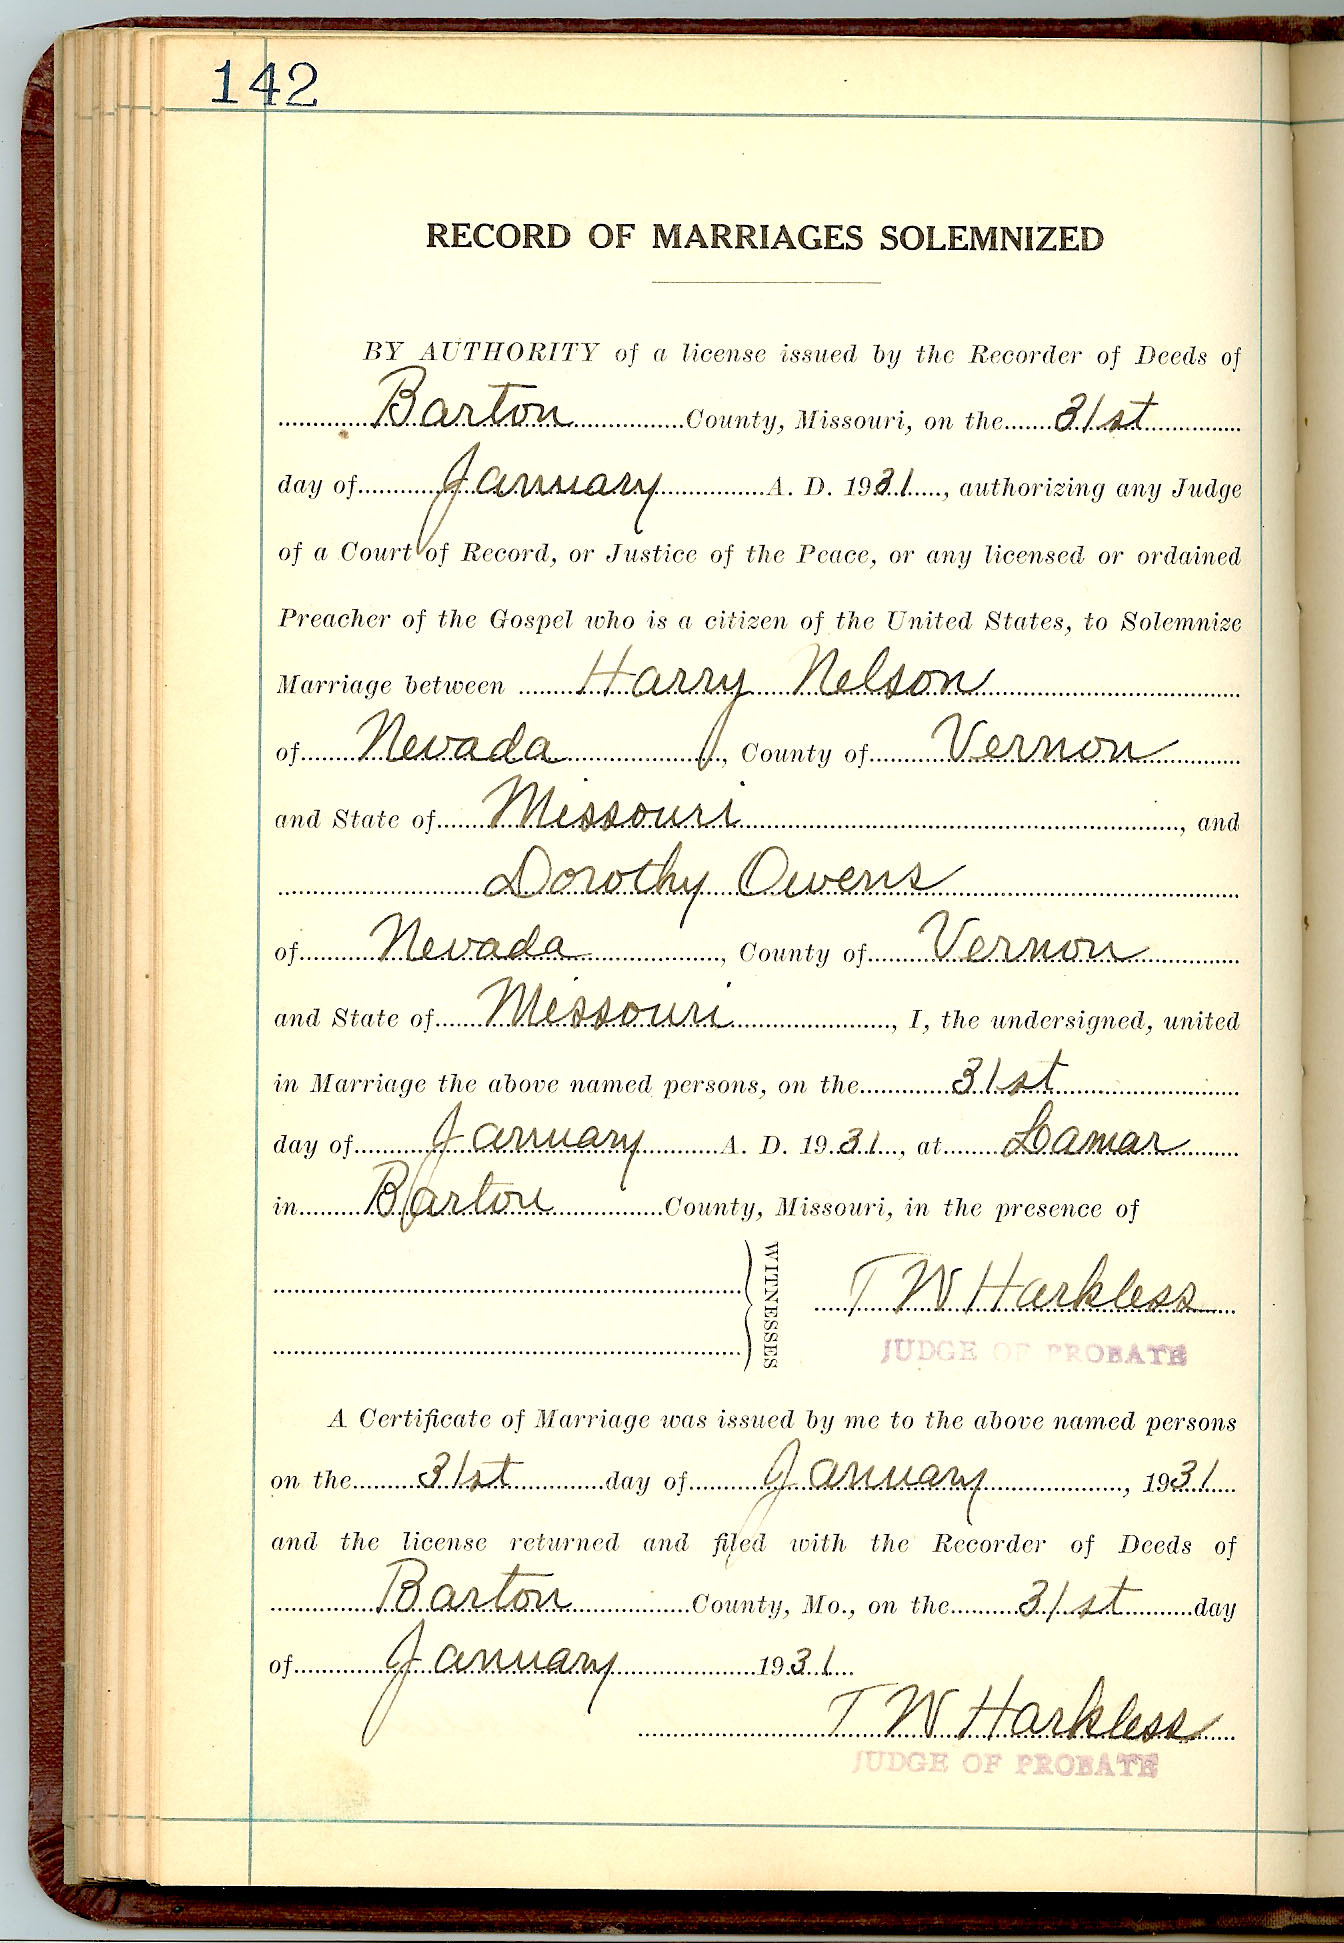 142
RECORD OF MARRIAGES SOLEMNIZED
BY AUTHORITY of a license issued by the Recorder of Deeds of
Barton County, Missouri, on the 31st
day of January A. D. 1931, authorizing any Judge
of a Court of Record, or Justice of the Peace, or any licensed or ordained
Preacher of the Gospel who is a citizen of the United States, to Solemnize
Marriage between Harry Nelson
of Nevada, County of Vernon
and State of Missouri, and
Dorothy Owens
of Nevada, County of Vernon
and State of Missouri, I, the undersigned, united
in Marriage the above named persons, on the 31st
day of January A. D. 1931, at Lamar
in Barton County, Missouri, in the presence of
WITNESSES
T W Harkless
JUDGE OF PROBATE
A Certificate of Marriage was issued by me to the above named persons
on the 31st day of January, 1931
and the license returned and filed with the Recorder of Deeds of
Barton County, Mo., on the 31st day
of January 1931
T W Harkless
JUDGE OF PROBATE